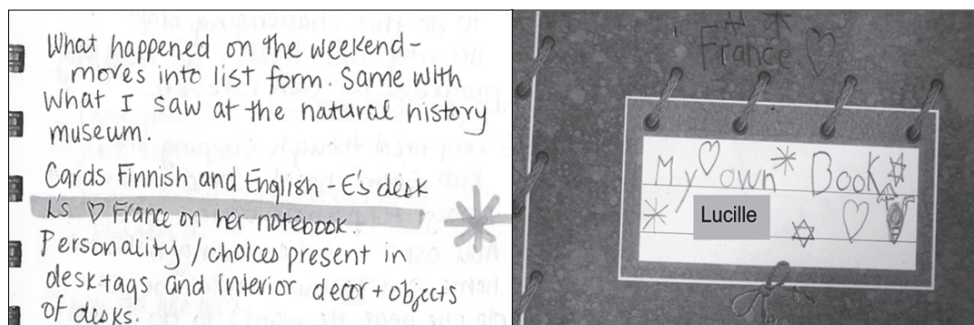 What happened on the weekend-
moves into list form. Same with
what I saw at the natural history
museum.
Cards Finnish and English - E's desk
L's ♡ France on her notebook.
Personality/choices present in
desk tags and interior decor + objects
of desks.
France ♡
My ♡ own Book
Lucille